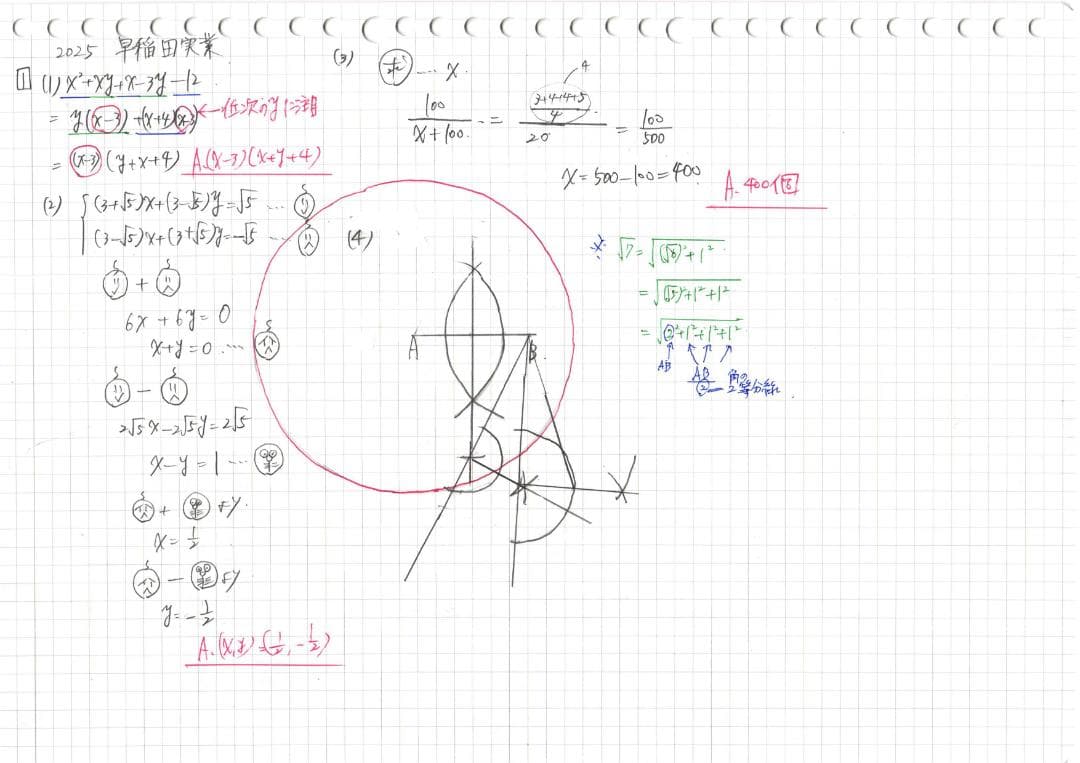 2025 早稲田実業
1 (1) x²+xy+x-3y-12
= y(x-3)+(x+4)(x-3) ← 低次のyに注目
= (x-3)(y+x+4) A.(x-3)(x+y+4)
(2) {(3+√5)x+(3-√5)y=√5 …
(3-√5)x+(3+√5)y=-√5 …
+
6x+6y=0
x+y=0 …
-
2√5x-2√5y=2√5
x-y=1 …
+ より
x=1/2
- より
y=-1/2
A.(x,y)=(1/2, -1/2)
(3) 求 … x
100/(x+100) = ((3+4+4+5)/4)/20 = 100/500
4
x=500-100=400
A. 400個
(4)
A
B
※ √7=√((√6)²+1²)
=√((√5)²+1²+1²)
=√(2²+1²+1²+1²)
AB
AB/2
角の2等分線